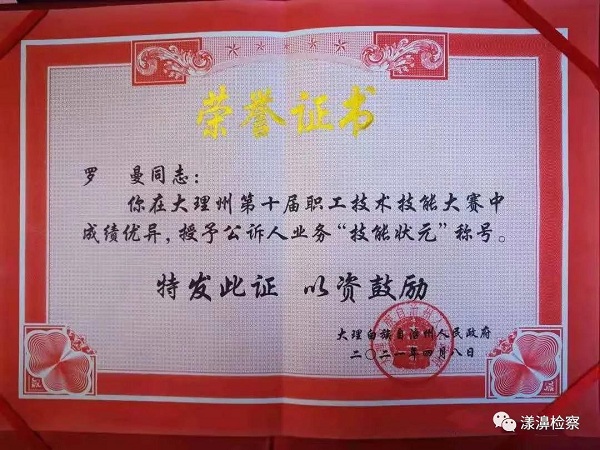 荣誉证书
罗 曼同志:
你在大理州第十届职工技术技能大赛中
成绩优异,授予公诉人业务“技能状元”称号。
特发此证 以资鼓励
大理白族自治州人民政府
二〇二一年四月八日
漾濞检察